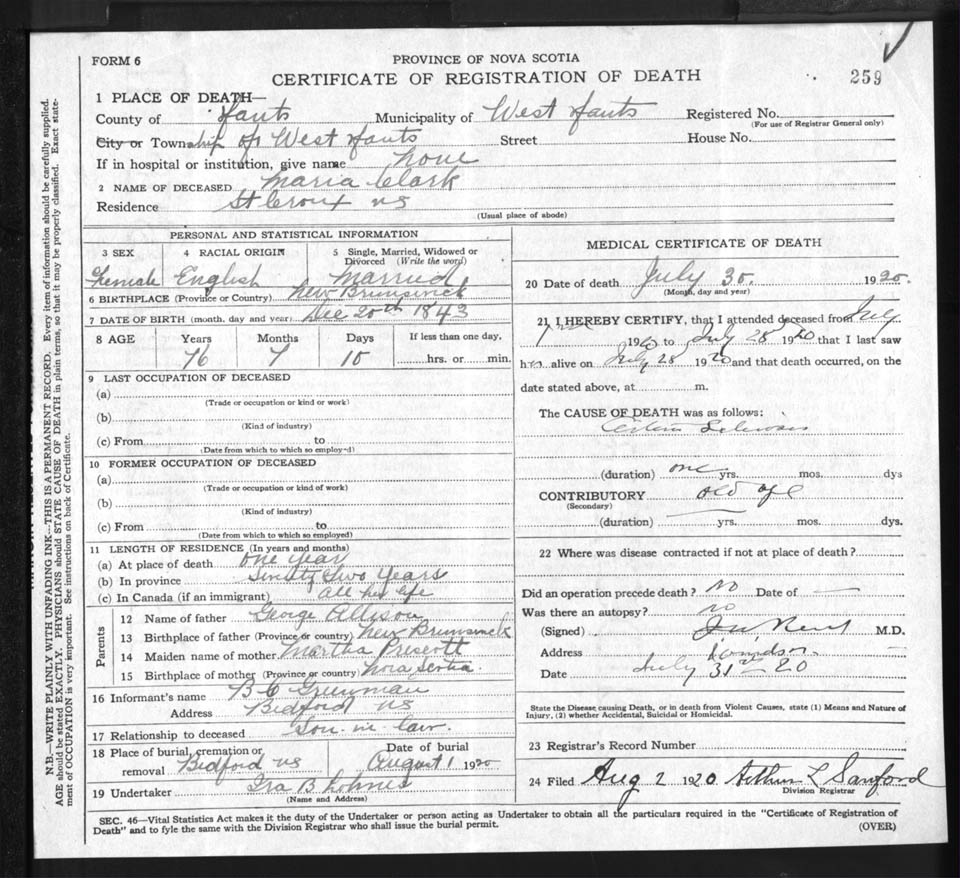 FORM 6
PROVINCE OF NOVA SCOTIA
CERTIFICATE OF REGISTRATION OF DEATH
259
1 PLACE OF DEATH—
County of Hants Municipality of West Hants Registered No.
(For use of Registrar General only)
City or Township of West Hants Street House No.
If in hospital or institution, give name none
2 NAME OF DECEASED Maria Clark
Residence St Croix NS
(Usual place of abode)
PERSONAL AND STATISTICAL INFORMATION
3 SEX 4 RACIAL ORIGIN 5 Single, Married, Widowed or Divorced (Write the word)
Female English Married
6 BIRTHPLACE (Province or Country) New Brunswick
7 DATE OF BIRTH (month, day and year) Dec 20th 1843
8 AGE Years Months Days If less than one day,
76 7 10 hrs. or min.
9 LAST OCCUPATION OF DECEASED
(a)
(Trade or occupation or kind or work)
(b)
(Kind of industry)
(c) From to
(Date from which to which so employ-d)
10 FORMER OCCUPATION OF DECEASED
(a)
(Trade or occupation or kind of work)
(b)
(Kind of industry)
(c) From to
(Date from which to which so employed)
11 LENGTH OF RESIDENCE (In years and months)
(a) At place of death one year
(b) In province Two Years
(c) In Canada (if an immigrant) all her life
Parents
12 Name of father George Allison
13 Birthplace of father (Province or country) New Brunswick
14 Maiden name of mother Martha Prescott
15 Birthplace of mother (Province or country) Nova Scotia.
16 Informant's name B C Greenman
Address Bedford NS
17 Relationship to deceased Son-in law.
18 Place of burial, cremation or removal Bedford NS
Date of burial August 1 1920
19 Undertaker Ira B Lohnes
(Name and Address)
MEDICAL CERTIFICATE OF DEATH
20 Date of death July 30. 1920.
(Month, day and year)
21 I HEREBY CERTIFY, that I attended deceased from July
1920 to July 28 1920 that I last saw
h alive on July 28 1920 and that death occurred, on the
date stated above, at m.
The CAUSE OF DEATH was as follows:
Sclerosis
(duration) one yrs. mos. dys
CONTRIBUTORY old age
(Secondary)
(duration) yrs. mos. dys.
22 Where was disease contracted if not at place of death?
Did an operation precede death? No Date of —
Was there an autopsy? no
(Signed) M.D.
Address
Date July 31st 20
State the Disease causing Death, or in death from Violent Causes, state (1) Means and Nature of
Injury, (2) whether Accidental, Suicidal or Homicidal.
23 Registrar's Record Number
24 Filed Aug 2 1920 Arthur L Sanford
Division Registrar
SEC. 46—Vital Statistics Act makes it the duty of the Undertaker or person acting as Undertaker to obtain all the particulars required in the "Certificate of Registration of
Death" and to fyle the same with the Division Registrar who shall issue the burial permit.
(OVER)
N.B.—WRITE PLAINLY WITH UNFADING INK—THIS IS A PERMANENT RECORD. Every item of information should be carefully supplied.
AGE should be stated EXACTLY. PHYSICIANS should STATE CAUSE OF DEATH in plain terms, so that it may be properly classified. Exact state-
ment of OCCUPATION is very important. See instructions on back of Certificate.